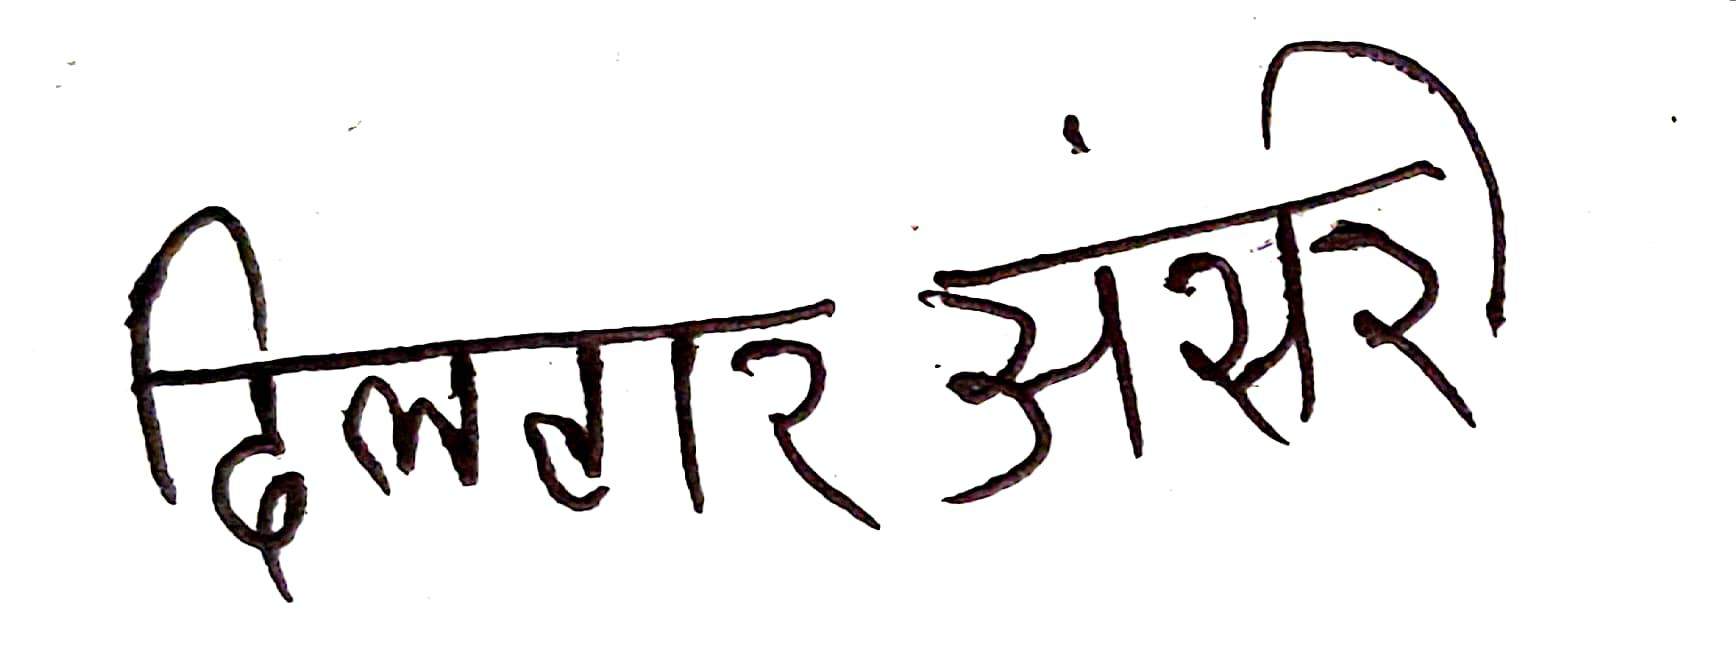 दिलदार अंसरी